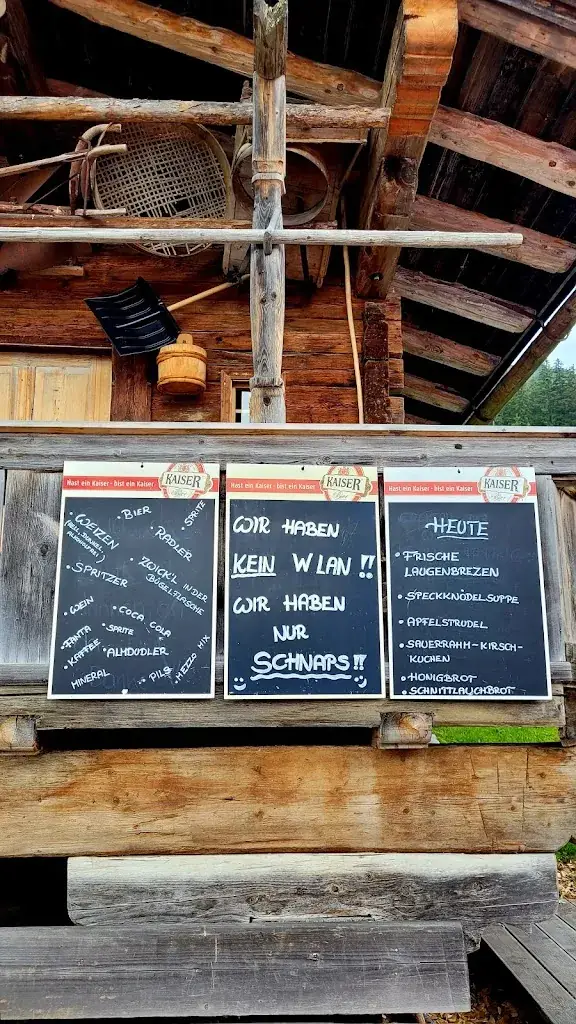 Hast ein Kaiser - bist ein Kaiser
KAISER
BIER
• BIER
• WEIZEN
(HELL, DUNKEL,
ALKOHOLFREI)
• SPRITE
• RADLER
• SPRITZER
• ZWICKL IN DER
BÜGELFLASCHE
• WEIN
• COCA COLA
• FANTA
• SPRITE
• KAFFEE
• ALMDUDLER
• MINERAL
• PILS
• MEZZO MIX
Hast ein Kaiser - bist ein Kaiser
KAISER
WIR HABEN
KEIN W LAN !!
WIR HABEN
NUR
SCHNAPS!!
Hast ein Kaiser - bist ein Kaiser
KAISER
HEUTE
• FRISCHE
LAUGENBREZEN
• SPECKKNÖDELSUPPE
• APFELSTRUDEL
• SAUERRAHM-KIRSCH-
KUCHEN
• HONIGBROT
• SCHNITTLAUCHBROT